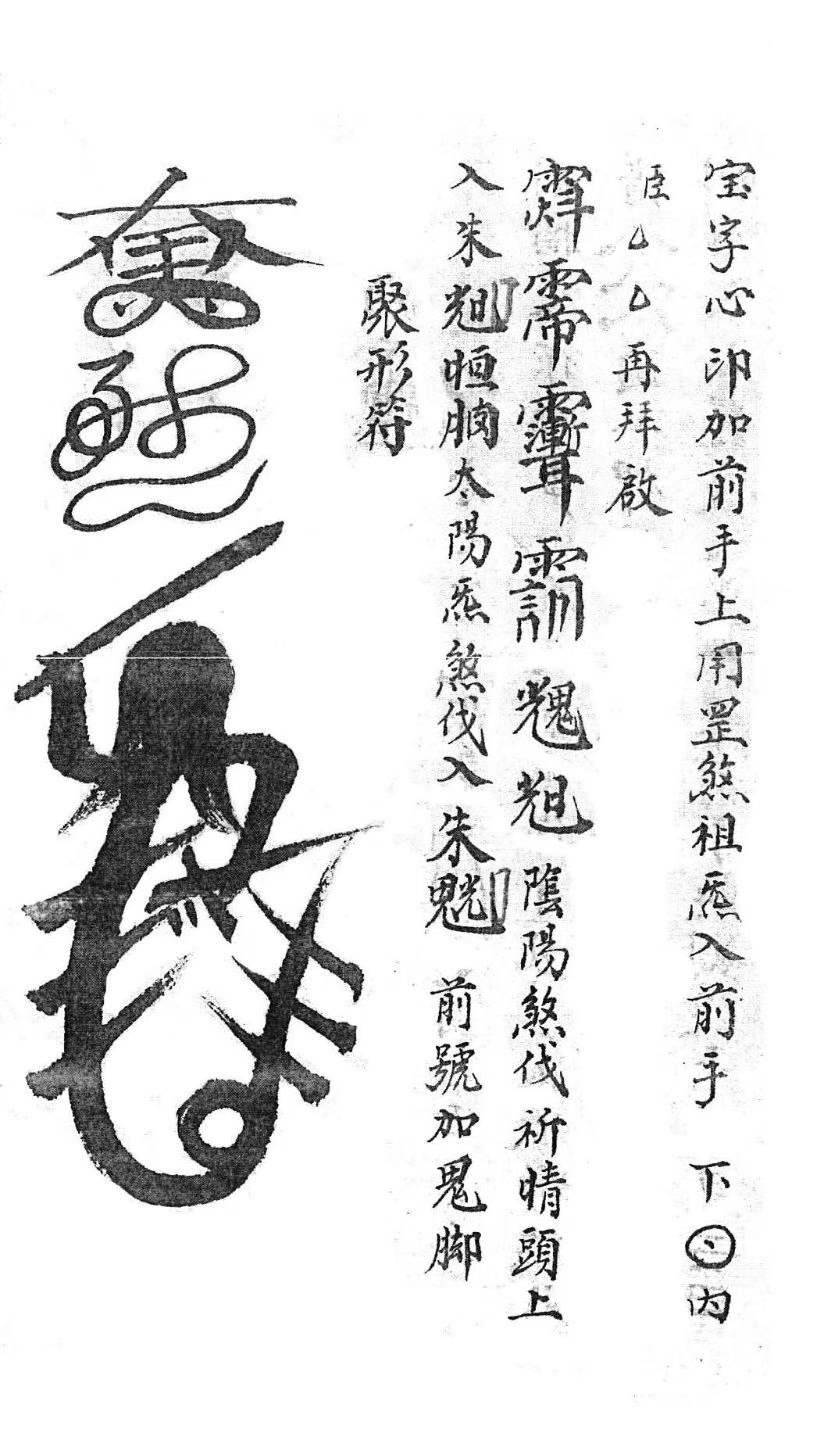 宝字心印加前手上用罡煞祖炁入前手 下⊙内
臣厶厶再拜啟
陰陽煞伐祈晴頭上
入朱 恒胸太陽炁煞伐入朱 前號加鬼脚
聚形符